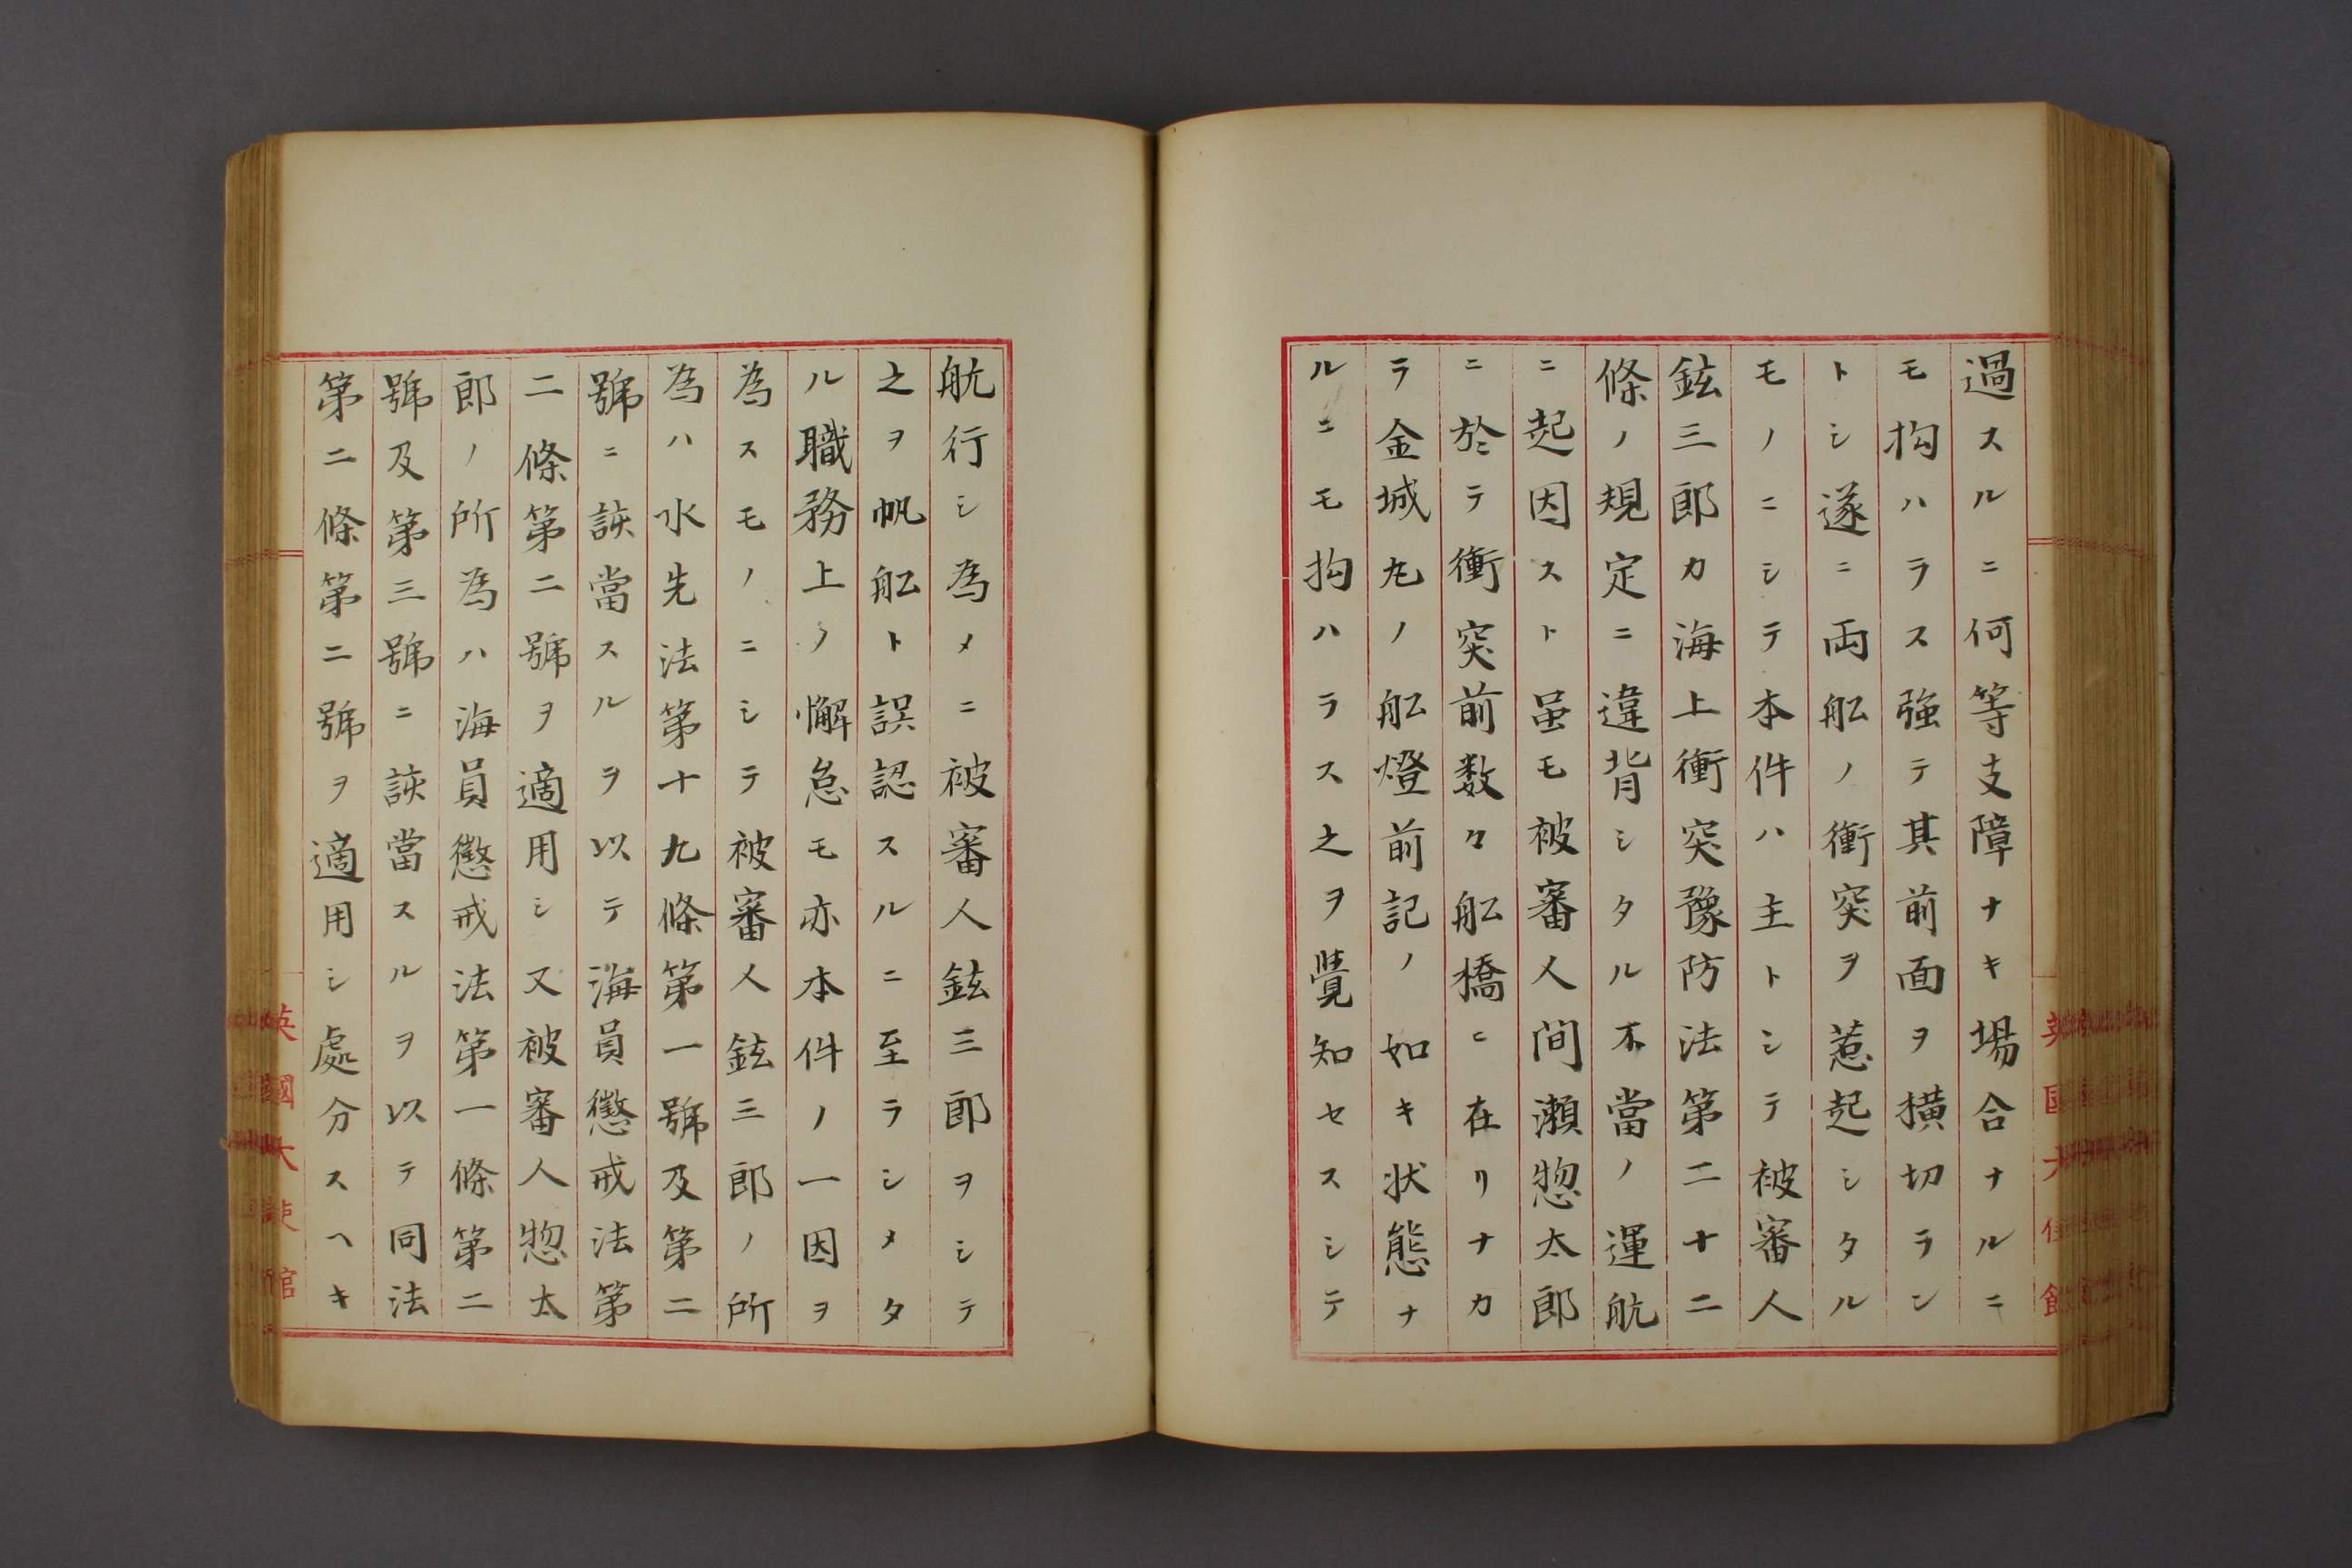 過スルニ何等支障ナキ場合ナルニ
モ拘ハラス強テ其前面ヲ横切ラン
トシ遂ニ両舩ノ衝突ヲ惹起シタル
モノニシテ本件ハ主トシテ被審人
鉉三郎カ海上衝突豫防法第二十二
條ノ規定ニ違背シタル不當ノ運航
ニ起因スト虽モ被審人間瀬惣太郎
ニ於テ衝突前数々舩橋ニ在リナカ
ラ金城丸ノ舩燈前記ノ如キ状態ナ
ルニモ拘ハラス之ヲ覺知セスシテ
航行シ為メニ被審人鉉三郎ヲシテ
之ヲ帆舩ト誤認スルニ至ラシメタ
ル職務上ノ懈怠モ亦本件ノ一因ヲ
為スモノニシテ被審人鉉三郎ノ所
為ハ水先法第十九條第一號及第二
號ニ詼當スルヲ以テ海員懲戒法第
二條第二號ヲ適用シ又被審人惣太
郎ノ所為ハ海員懲戒法第一條第二
號及第三號ニ詼當スルヲ以テ同法
第二條第二號ヲ適用シ處分スヘキ
英國大使館